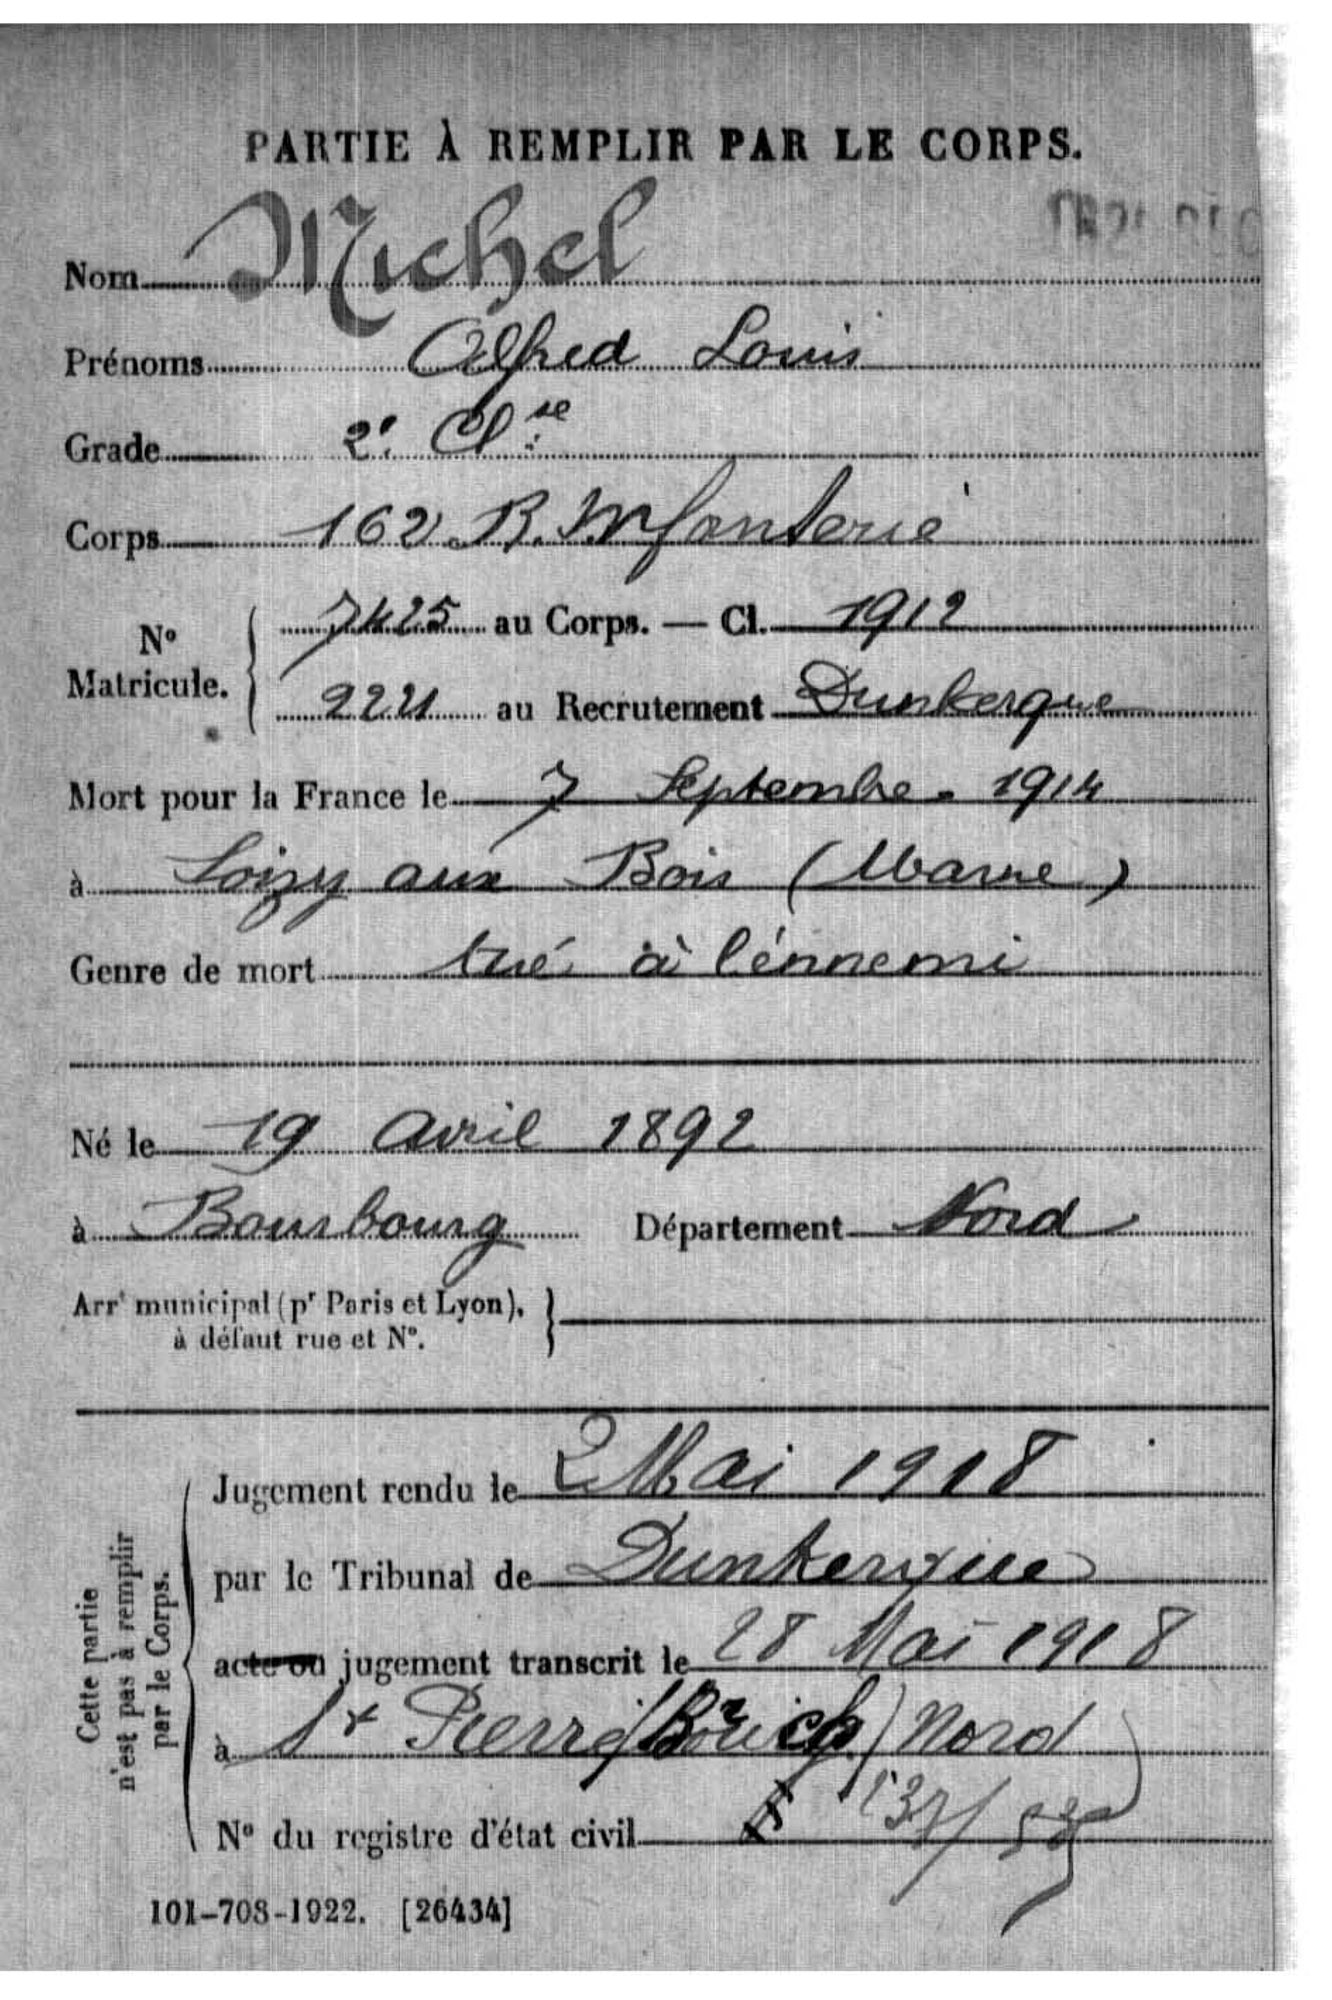 PARTIE À REMPLIR PAR LE CORPS.
Nom Michel
Prénoms Alfred Louis
Grade 2e Clse
Corps 162 R. Infanterie
N° Matricule.
7425 au Corps. — Cl. 1912
2221 au Recrutement Dunkerque
Mort pour la France le 7 Septembre. 1914
à Soizy aux Bois (Marne)
Genre de mort tué à l'énnemi
Né le 19 Avril 1892
à Bourbourg Département Nord
Arrt municipal (pr Paris et Lyon),
à défaut rue et N°.
Cette partie
n'est pas à remplir
par le Corps.
Jugement rendu le 2 Mai 1918
par le Tribunal de Dunkerque
acte ou jugement transcrit le 28 Mai 1918
à St Pierre Nord
N° du registre d'état civil
101-708-1922. [26434]